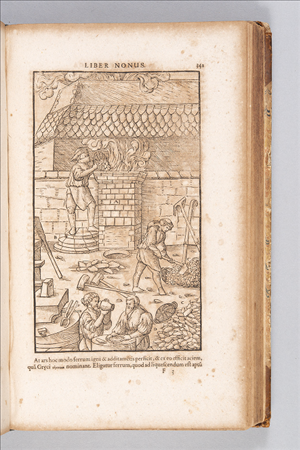 LIBER NONUS.
At ars hoc modo ferrum igni & additamētis perficit; & ex eo efficit aciem,
quā Græci nominant. Eligatur ferrum, quod ad liquescendum est aptū
F